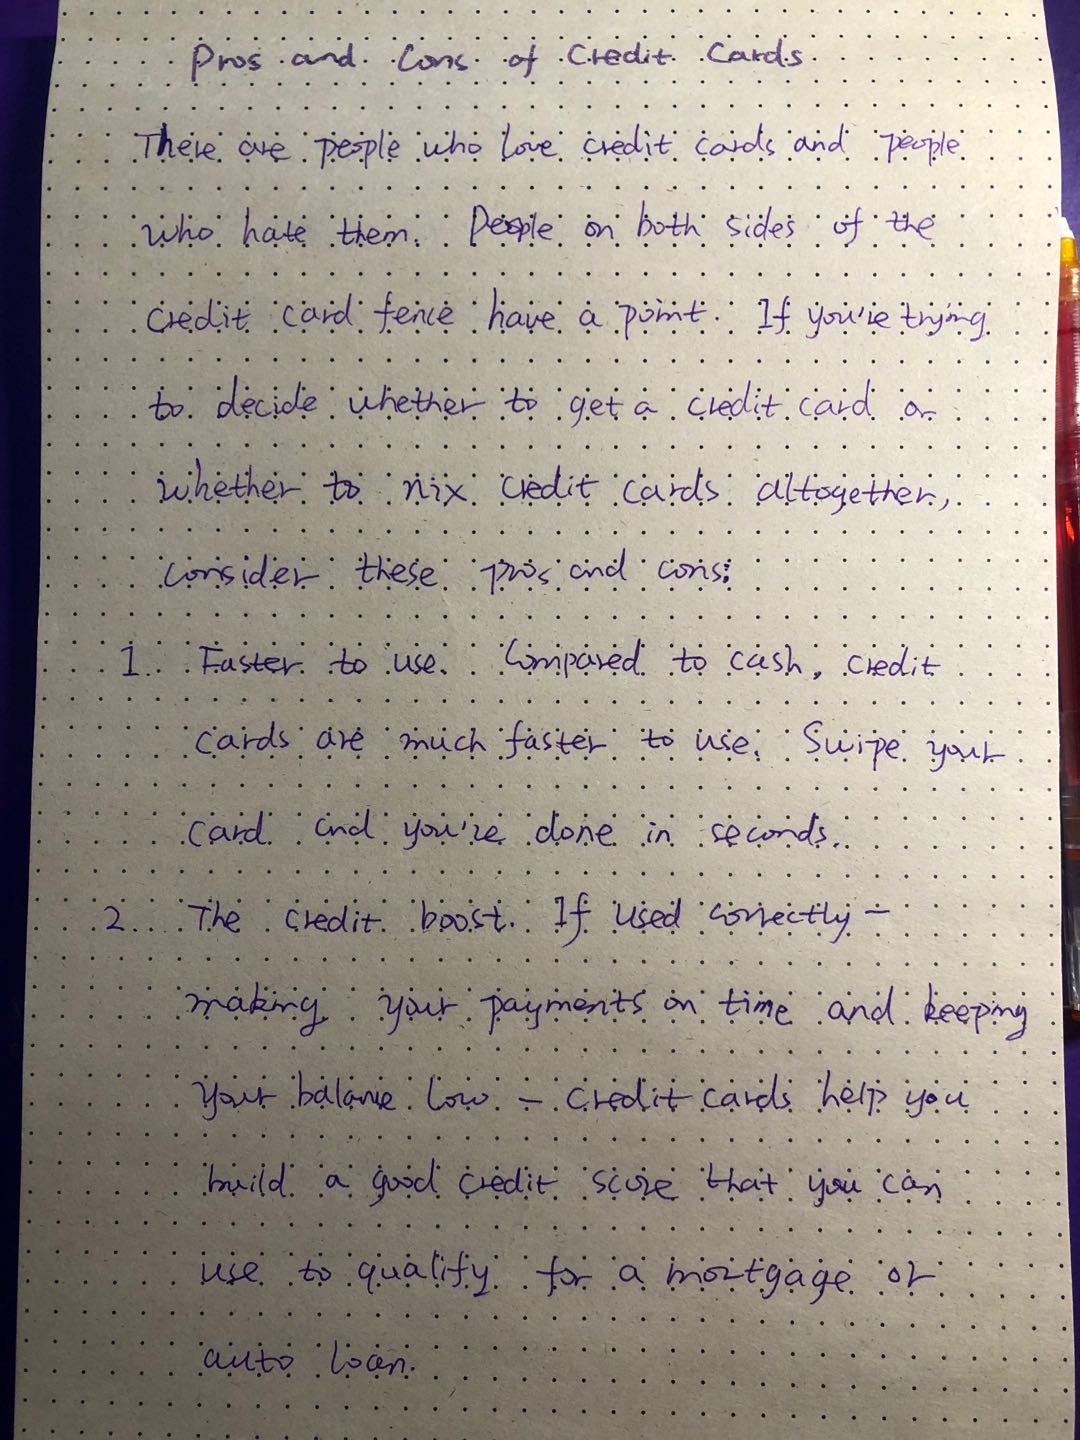 Pros and Cons of Credit Cards
There are people who love credit cards and people
who hate them. People on both sides of the
credit card fence have a point. If you're trying
to decide whether to get a credit card or
whether to nix credit cards altogether,
consider these pros and cons:
1. Faster to use. Compared to cash, credit
cards are much faster to use. Swipe your
card and you're done in seconds.
2. The credit boost. If used correctly –
making your payments on time and keeping
your balance low – credit cards help you
build a good credit score that you can
use to qualify for a mortgage or
auto loan.